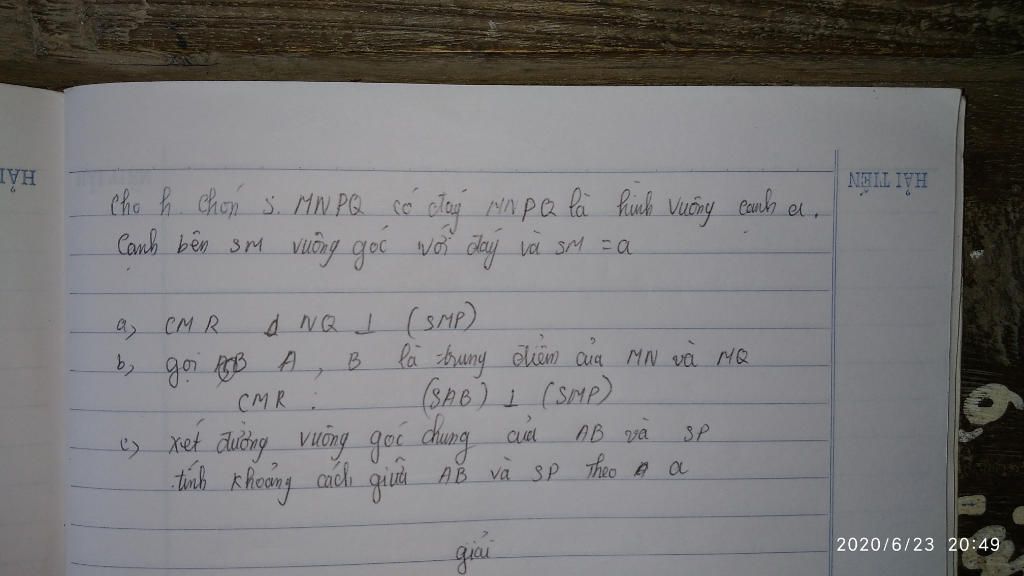 Cho h. chóp S. MNPQ có đáy MNPQ là hình vuông cạnh a.
Cạnh bên SM vuông góc với đáy và SM = a
a, CMR NQ ⊥ (SMP)
b, gọi A, B là trung điểm của MN và MQ
CMR : (SAB) ⊥ (SMP)
c, xét đường vuông góc chung của AB và SP
tính khoảng cách giữa AB và SP theo a
giải
HẢI TIẾN
HẢI
2020/6/23 20:49